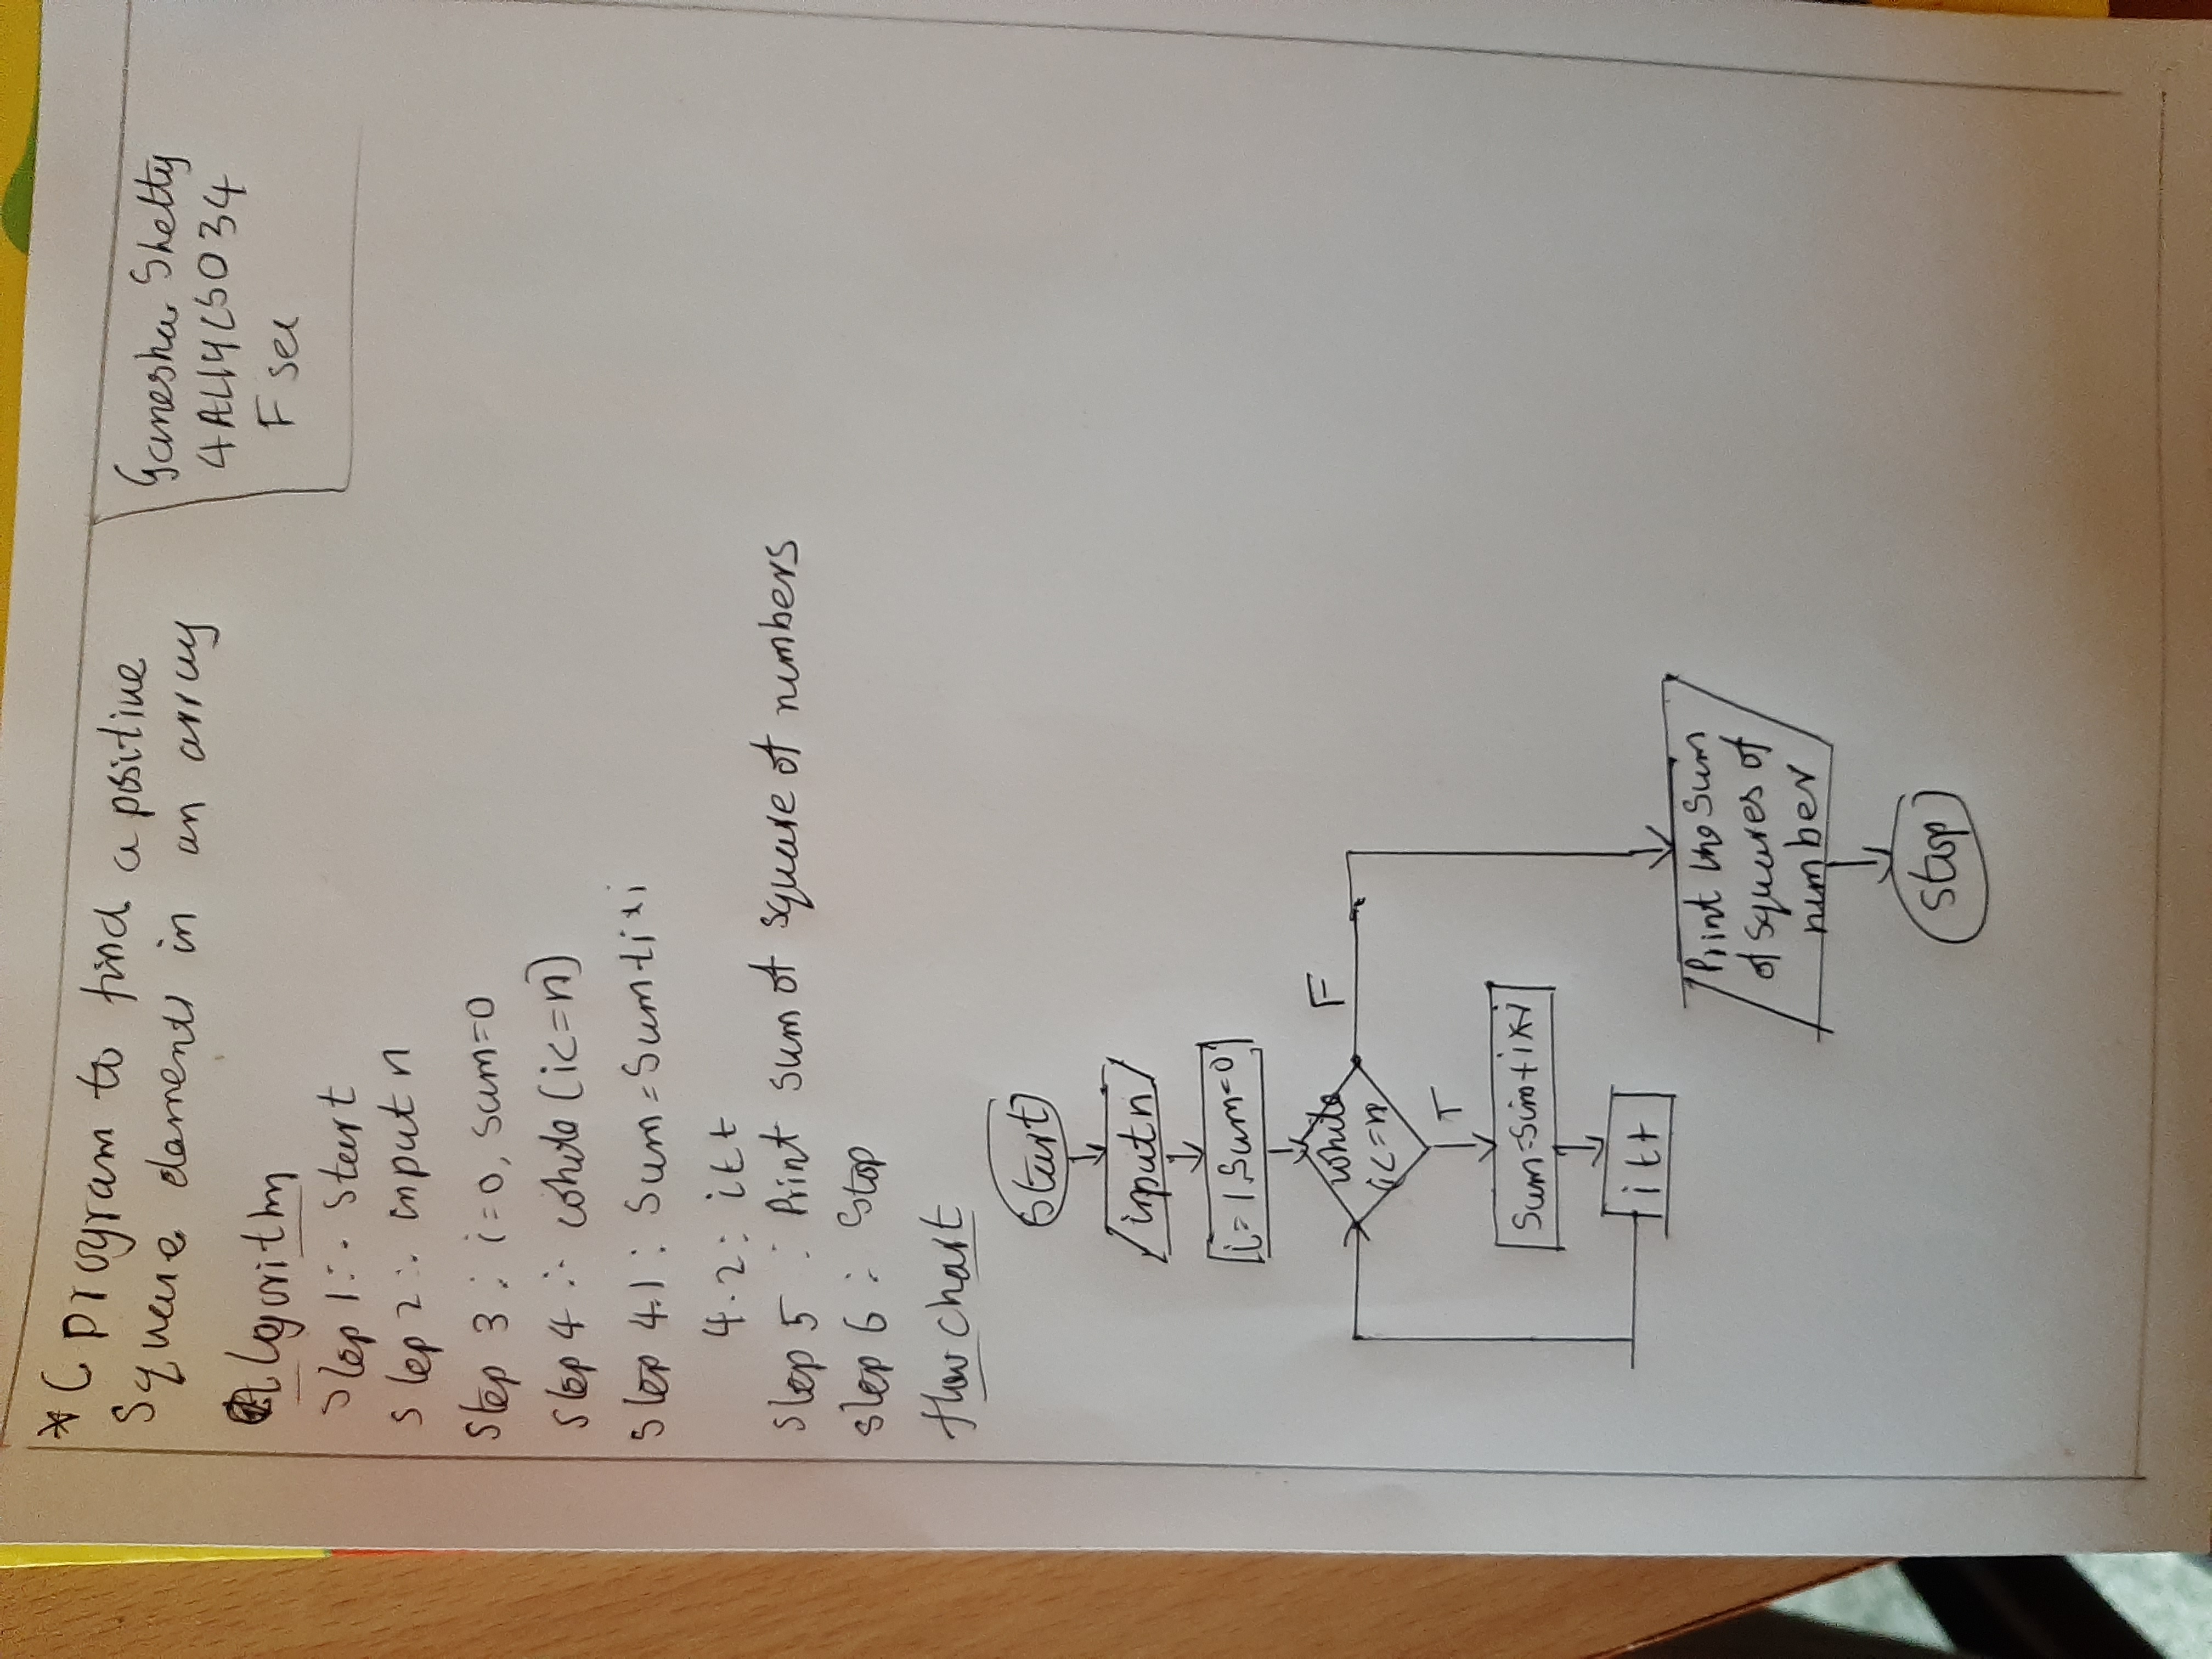 * C program to find a positive
Square elements in an array
Ganesha Shetty
4AL14CS034
F sec
Algorithm
Step 1:- Start
Step 2:- input n
Step 3: i=0, sum=0
Step 4:- while (i<=n)
Step 4.1: Sum=Sum+i*i
4.2: i++
Step 5: Print sum of square of numbers
Step 6: Stop
flow chart
Start
input n
i=1, Sum=0
while
i<=n
F
T
Sum=Sum+i*i
i++
Print the Sum
of squares of
number
Stop